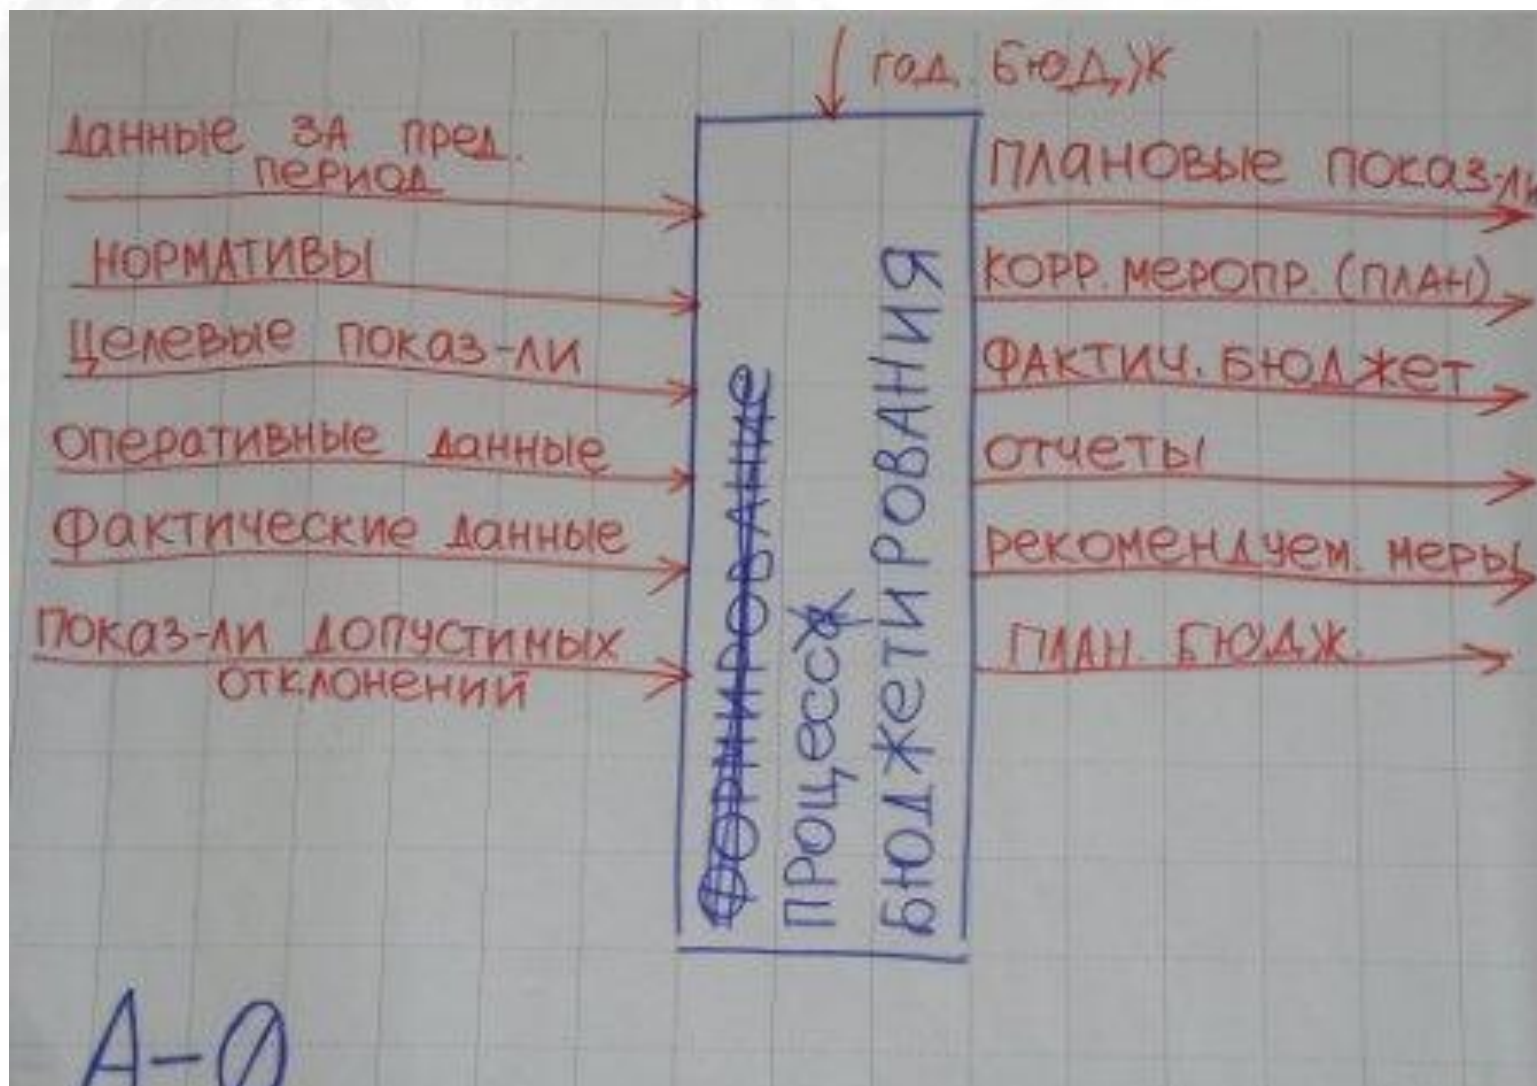 год. БЮДЖ
Данные ЗА пред.
ПЕРИОД
НОРМАТИВЫ
Целевые показ-ли
оперативные данные
Фактические данные
Показ-ли допустимых
отклонений
ФОРМИРОВАНИЕ
ПРОЦЕССА
БЮДЖЕТИРОВАНИЯ
ПЛАНОВЫЕ показ-ли
КОРР. МЕРОПР. (ПЛАН)
ФАКТИЧ. БЮДЖЕТ
отчеты
рекомендуем. меры
ПЛАН. БЮДЖ.
А-0